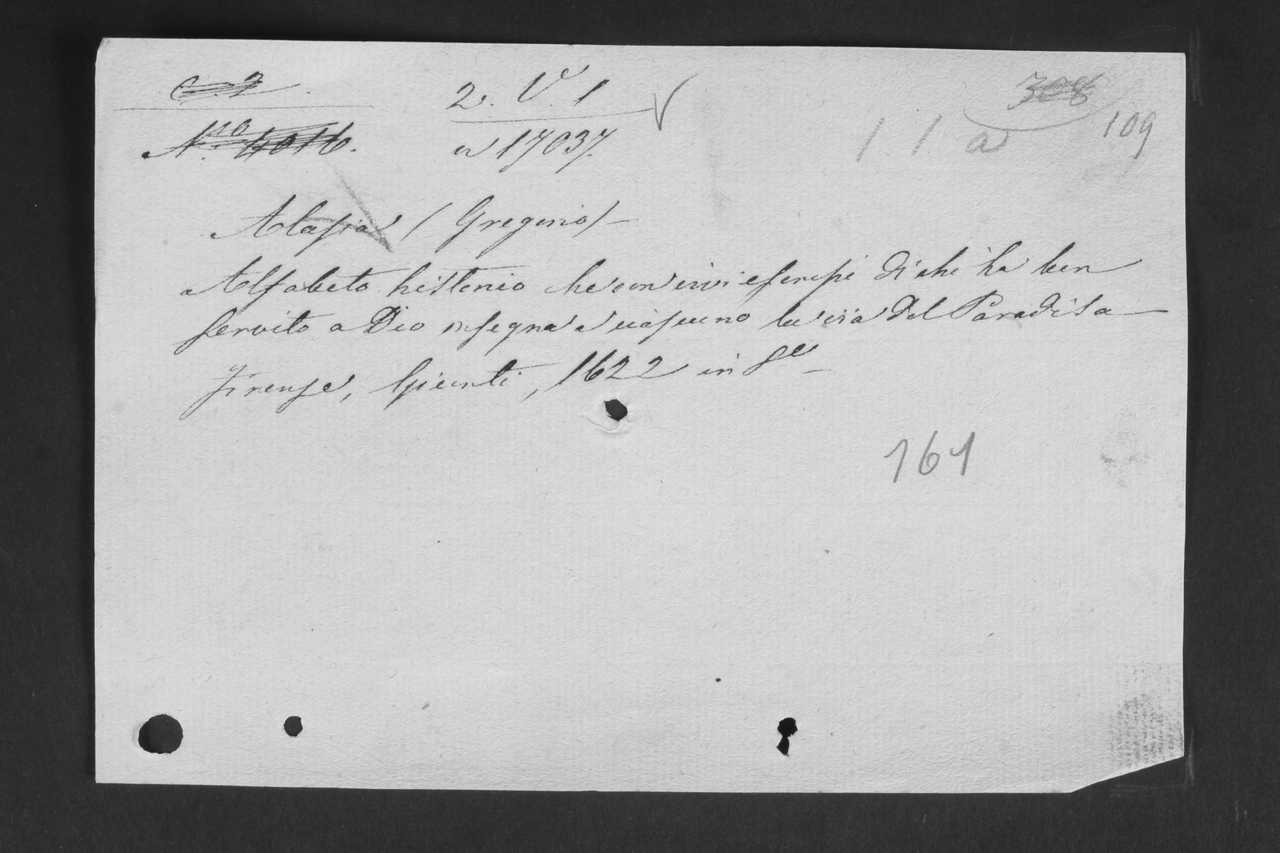 C. 2. 2. V.e 1 308
N.ro 4016. n 17037. 1 1 a 109
Alasia (Gregorio)
Alfabeto historio che con varii esempi di chi ha ben
servito a Dio insegna a ciascuno la via del Paradiso
Firenze, Giunti, 1622 in 8.
161